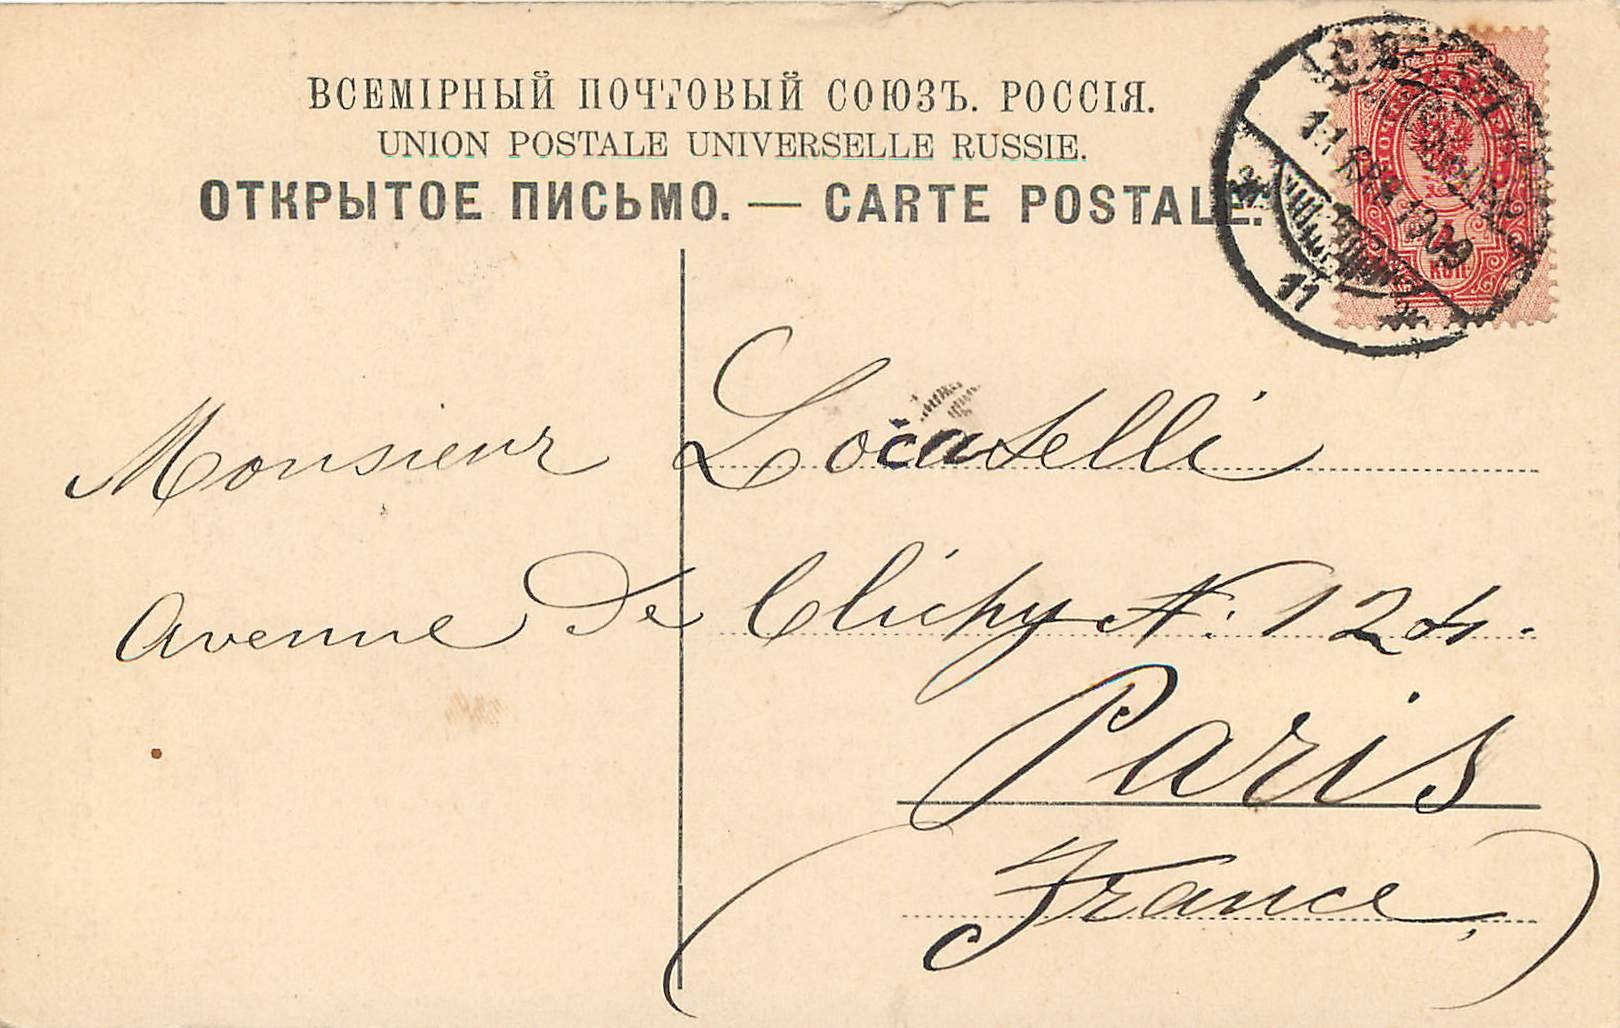 ВСЕМІРНЫЙ ПОЧТОВЫЙ СОЮЗЪ. РОССІЯ.
UNION POSTALE UNIVERSELLE RUSSIE.
ОТКРЫТОЕ ПИСЬМО. — CARTE POSTALE.
1909
11
КОП
Monsieur Locatelli
Avenue De Clichy N: 124.
Paris
France